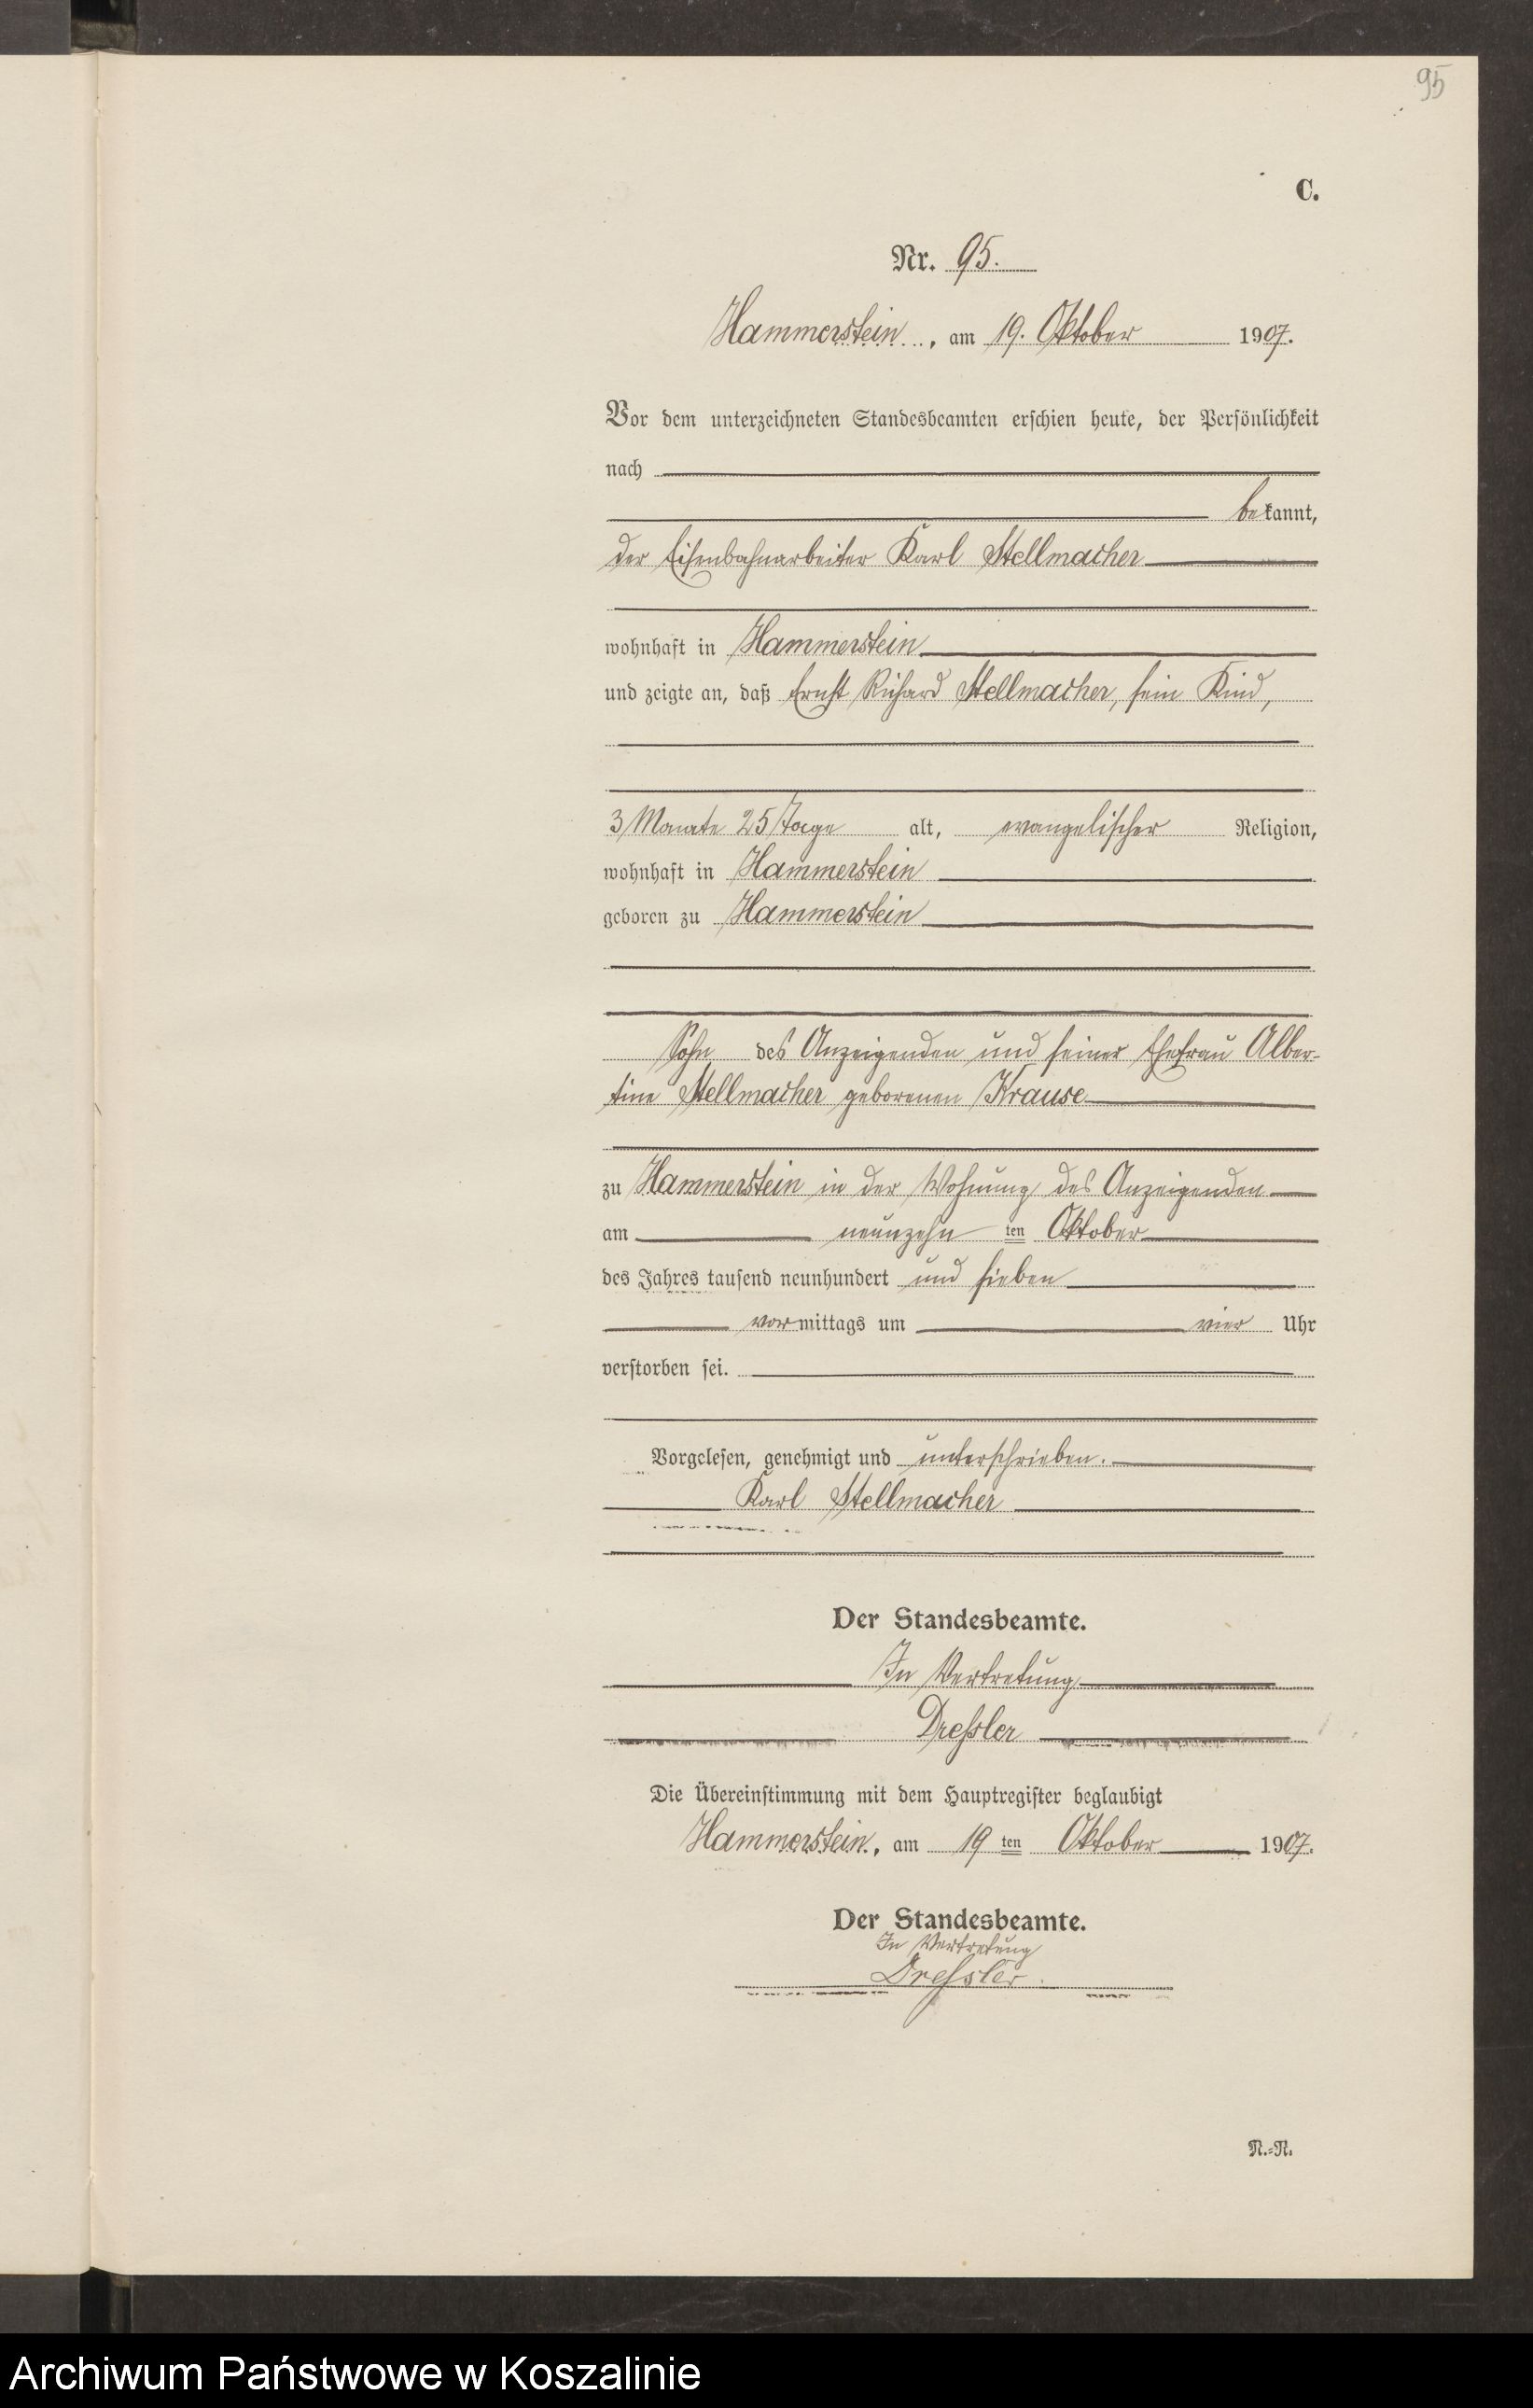 95
C.
Nr. 95.
Hammerstein, am 19. Oktober 1907.
Vor dem unterzeichneten Standesbeamten erschien heute, der Persönlichkeit
nach
bekannt,
der Eisenbahnarbeiter Karl Stellmacher
wohnhaft in Hammerstein
und zeigte an, daß Ernst Richard Stellmacher, sein Kind,
3 Monate 25 Tage alt, evangelischer Religion,
wohnhaft in Hammerstein
geboren zu Hammerstein
Sohn des Anzeigenden und seiner Ehefrau Alber-
tine Stellmacher geborenen Krause
zu Hammerstein in der Wohnung des Anzeigenden
am neunzehn ten Oktober
des Jahres tausend neunhundert und sieben
vormittags um vier Uhr
verstorben sei.
Vorgelesen, genehmigt und unterschrieben.
Karl Stellmacher
Der Standesbeamte.
In Vertretung
Dreßler
Die Übereinstimmung mit dem Hauptregister beglaubigt
Hammerstein, am 19 ten Oktober 1907.
Der Standesbeamte.
In Vertretung
Dreßler.
N.-R.
Archiwum Państwowe w Koszalinie